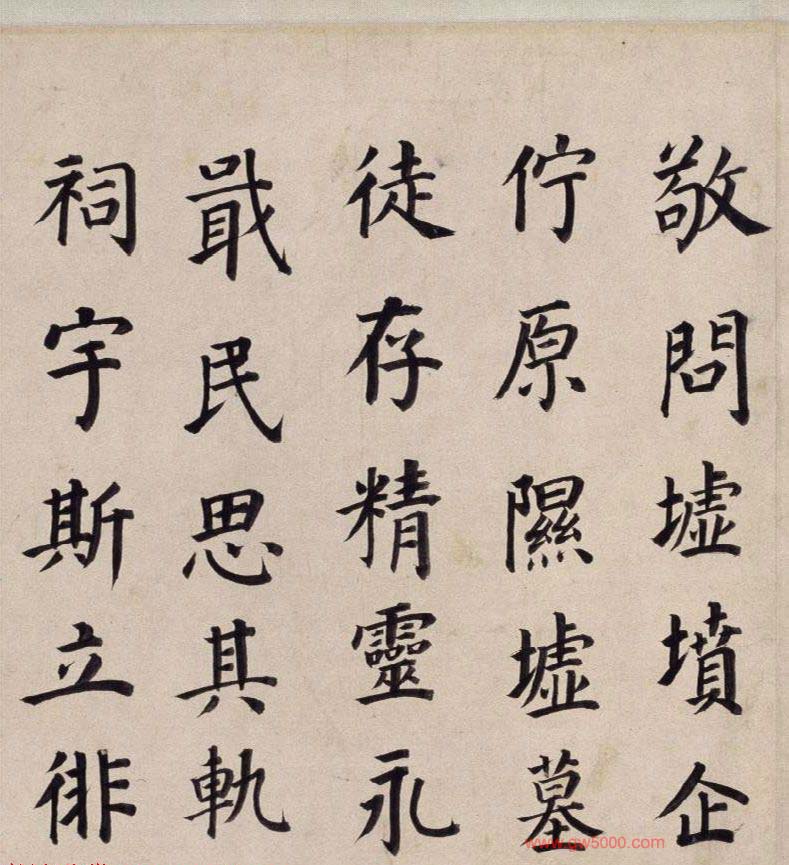 敬問墟墳企
佇原隰墟墓
徒存精靈永
戢民思其軌
祠宇斯立徘
www.gw5000.com